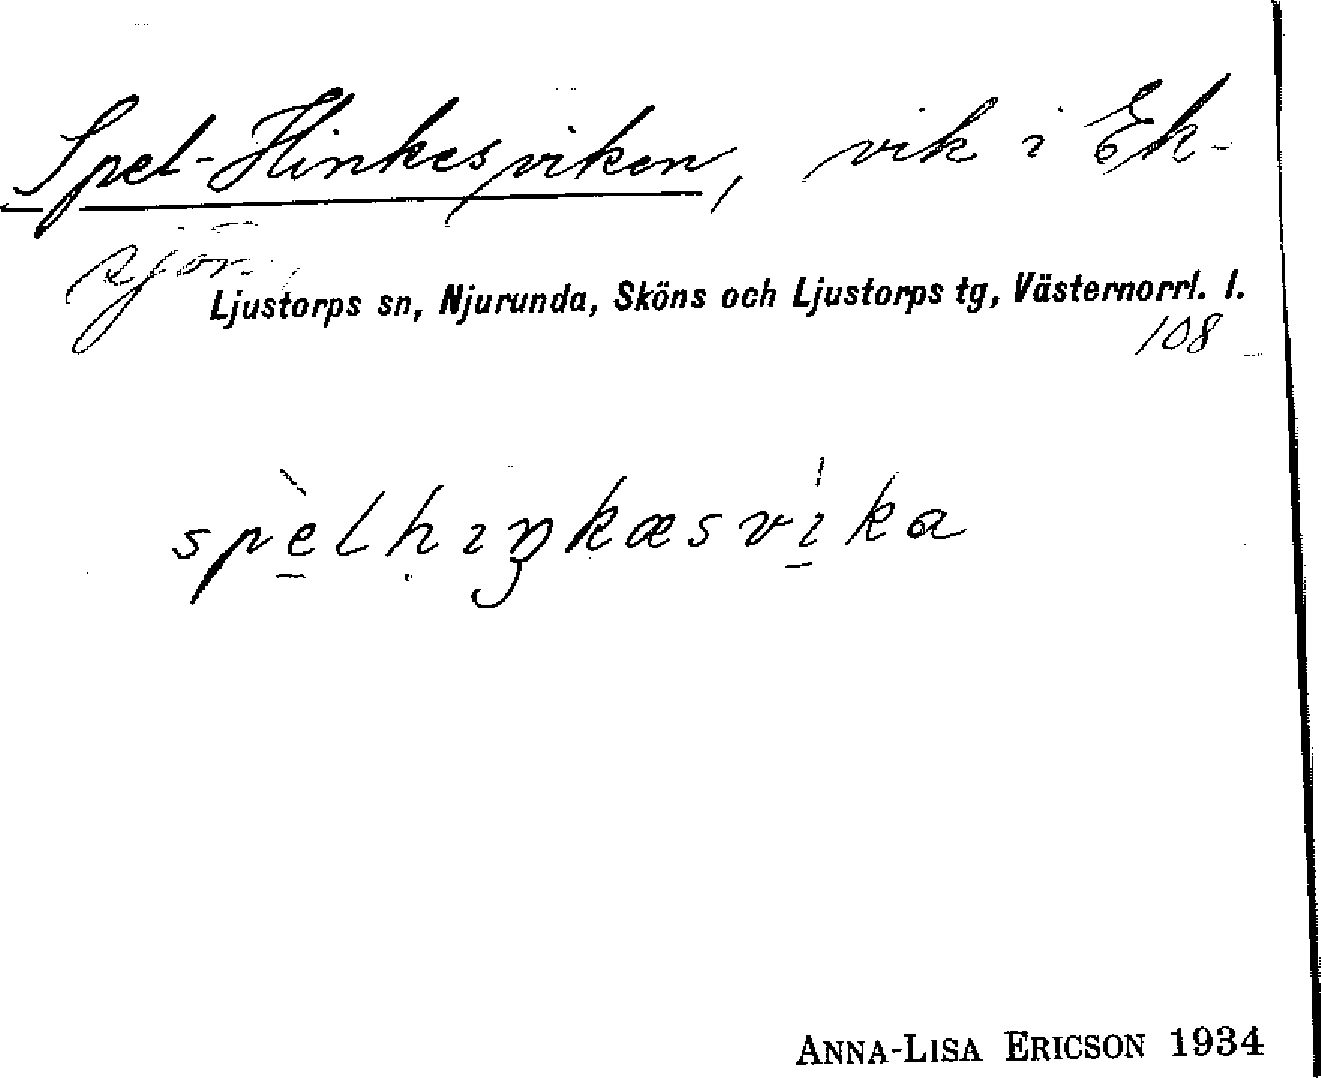 Spel-Hinkesviken, vik i Ek-
sjön.
Ljustorps sn, Njurunda, Sköns och Ljustorps tg, Västernorrl. l.
108
spèlhıŋkæsvi̍ka
ANNA-LISA ERICSON 1934